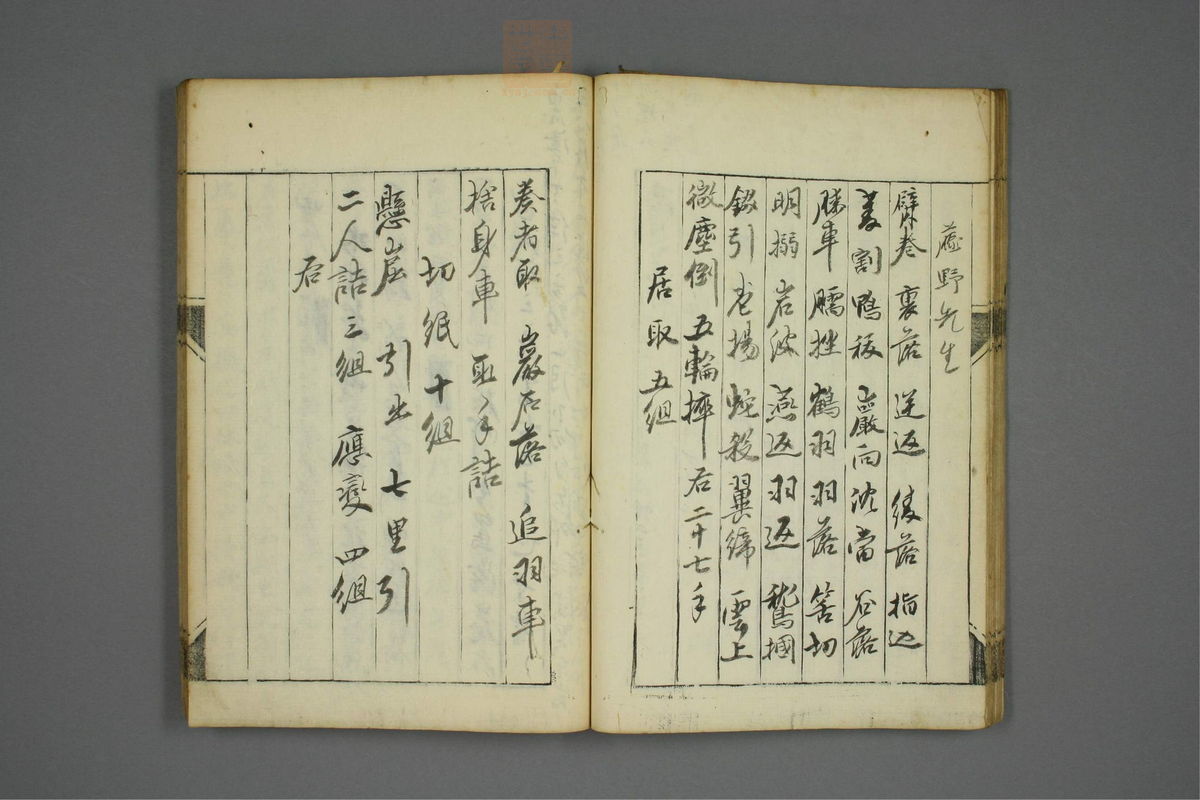 蔗野先生
臂巻 裏落 逆返 後落 指返
菱割 鴨 巌向 沈當 谷落
膝車 臑挫 鶴羽 羽落 筈切
明搦 岩波 燕返 羽返 鷲摑
錣引 虎揚 蛇殺 翼締 雲上
微塵倒 五輪摔 右二十七手
居取五組
奏者取 巌石落 追羽車
捨身車 取手詰
切紙十組
懸崖 引出 七里引
二人詰三組 應變 四組
右